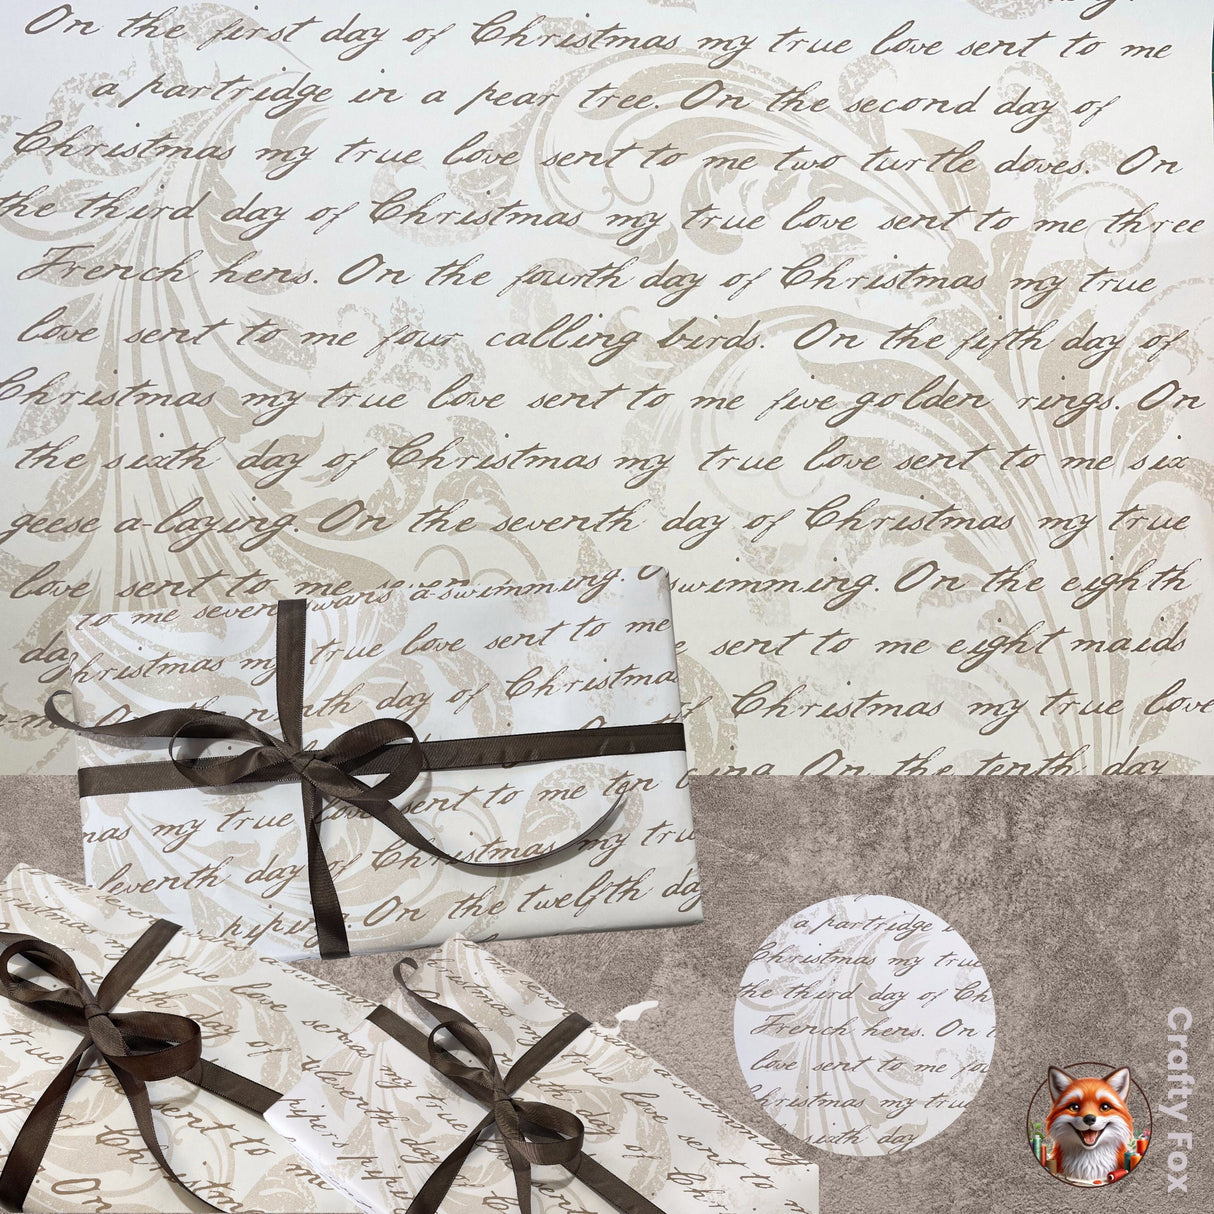 On the first day of Christmas my true love sent to me
a partridge in a pear tree. On the second day of
Christmas my true love sent to me two turtle doves. On
the third day of Christmas my true love sent to me three
French hens. On the fourth day of Christmas my true
love sent to me four calling birds. On the fifth day of
Christmas my true love sent to me five golden rings. On
the sixth day of Christmas my true love sent to me six
geese a-laying. On the seventh day of Christmas my true
love sent to me seven swimming. On the eighth
day sent to me eight maids
Christmas my true love
On the tenth day
to me seven swans a-swimming.
Christmas my true love sent to me
day of Christmas
sent to me ten
mas my true love
eleventh day of Christmas my tru
piping. On the twelfth day
love
day of
sent to
On
my true
sent
a partridge
Christmas my true
the third day of Ch
French hens. On
love sent to me
hristmas my true
sixth day
Crafty Fox